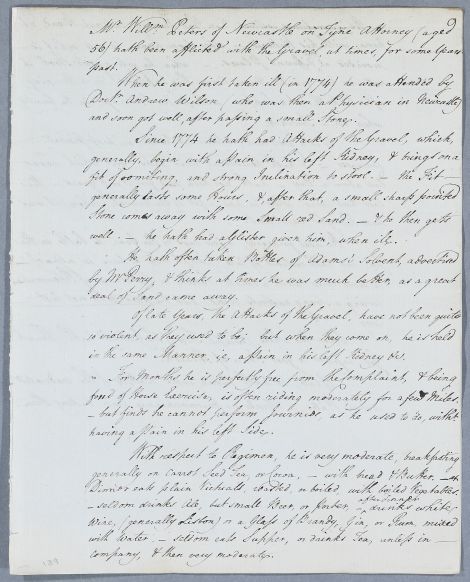 Mr. Willm. Peters of Newcastle on Tyne Attorney (aged
56) hath been afflicted with the Gravel, at times, for some Years
past.
When he was first taken ill (in 1774) he was attended by
Doctr. Andrew Wilson, (who was then a Physician in Newcastle)
and soon got well, after passing a small Stone.
Since 1774 he hath had Attacks of the Gravel, which,
generally, begin with a pain in his left Kidney, & brings on a
fit of vomiting, and strong Inclination to Stool. — the Fit
generally lasts some Hours, & after that, a small sharp pointed
Stone comes away with some Small red Sand. — & he then gets
well. — he hath had a Glister given him, when ill.
He hath often taken Bottles of Adams's Solvent, advertised
by Mr Perry, & thinks at times he was much better, as a great
deal of Sand came away.
Of late Years, the Attacks of the Gravel, have not been quite
so violent, as they used to be; but when they come on, he is held
in the same Manner, i.e, a pain in his left Kidney &c.
For Months he is perfectly free from the Complaint, & being
fond of Horse Exercise, is often riding moderately for a few Miles.
— but finds he cannot perform Journies as he used to do, without
having a Pain in his left Side.
With respect to Regimen, he is very moderate, breakfasting
generally on Carrot Seed Tea, — with bread & Butter, — at
Dinner eats plain Victuals, roasted, or boiled with boiled Vegetables.
— seldom drinks Ale, but small Beer, or — after Dinner drinks white
Wine, (generally Lisbon) or a Glass of Brandy, Gin, or Rum mixed
with Water — seldom eats Supper, or drinks Tea, unless in
company, & then very moderately.